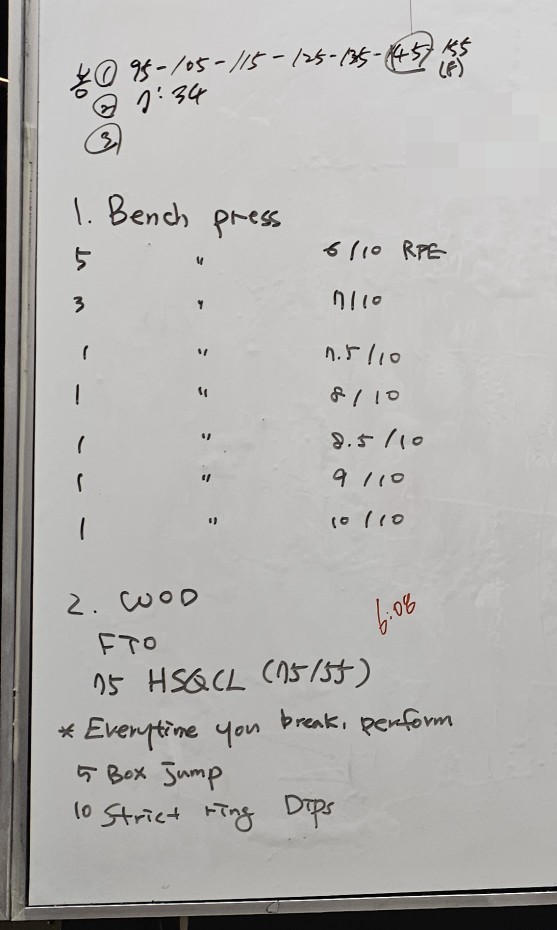 봉 ① 95-105-115-125-135-145-155
(F)
② 7:34
③
1. Bench press
5 " 6/10 RPE
3 " 7/10
1 " 7.5/10
1 " 8/10
1 " 8.5/10
1 " 9/10
1 " 10/10
2. WOD
6:08
FTO
75 HSQCL (75/55)
* Everytime you break, perform
5 Box jump
10 Strict ring Dips